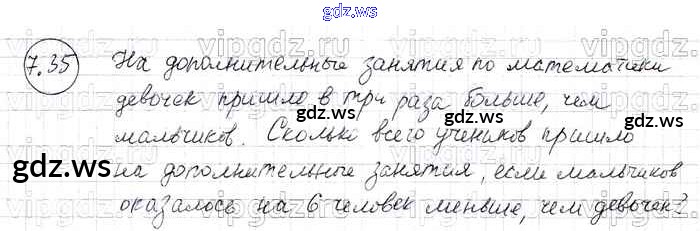 gdz.ws
7.35 На дополнительные занятия по математики
девочек пришло в три раза больше, чем
мальчиков. Сколько всего учеников пришло
на дополнительные занятия, если мальчиков
оказалось на 6 человек меньше, чем девочек?
gdz.ws
gdz.ws
gdz.ws